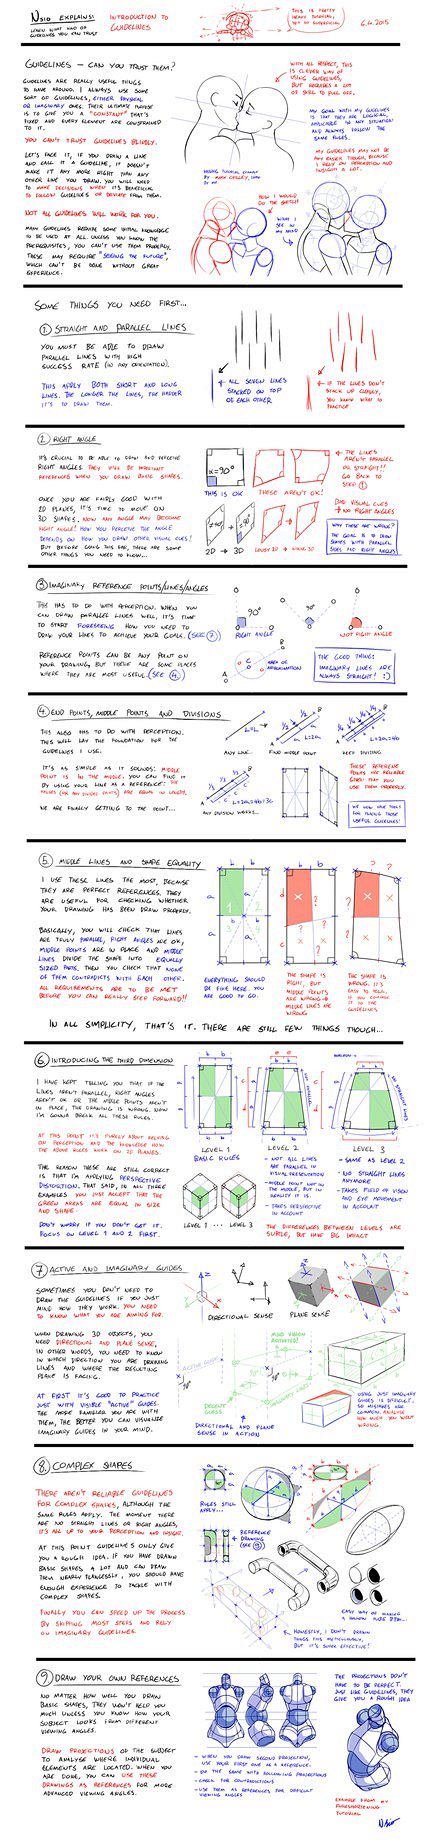 NSIO EXPLAINS:
INTRODUCTION TO
GUIDELINES
LEARN WHAT KIND OF
GUIDELINES YOU CAN TRUST
THIS IS PRETTY
HEAVY TUTORIAL,
NOT SO SUPERFICIAL
6.10.2015
GUIDELINES – CAN YOU TRUST THEM?
GUIDELINES ARE REALLY USEFUL THINGS
TO HAVE AROUND. I ALWAYS USE SOME
SORT OF GUIDELINES, EITHER PHYSICAL
OR IMAGINARY ONES. THEIR ULTIMATE PURPOSE
IS TO GIVE YOU A "CONSTANT" THAT'S
FIXED AND EVERY ELEMENT ARE CONSTRAINED
TO IT.
YOU CAN'T TRUST GUIDELINES BLINDLY.
LET'S FACE IT, IF YOU DRAW A LINE
AND CALL IT A GUIDELINE, IT DOESN'T
MAKE IT ANY MORE RIGHT THAN ANY
OTHER LINE YOU DRAW. YOU WILL NEED
TO MAKE DECISIONS WHEN IT'S BENEFICIAL
TO FOLLOW GUIDELINES OR DEVIATE FROM THEM.
NOT ALL GUIDELINES WILL WORK FOR YOU.
MANY GUIDELINES REQUIRE SOME INITIAL KNOWLEDGE
TO BE USED AT ALL. UNLESS YOU KNOW THE
PREREQUISITES, YOU CAN'T USE THEM PROPERLY.
THESE MAY REQUIRE "SEEING THE FUTURE",
WHICH CAN'T BE DONE WITHOUT GREAT
EXPERIENCE.
WITH ALL RESPECT, THIS
IS CLEVER WAY OF
USING GUIDELINES,
BUT REQUIRES A LOT
OF SKILL TO PULL OFF.
MY GOAL WITH MY GUIDELINES
IS THAT THEY ARE LOGICAL,
APPLICABLE IN ANY SITUATION
AND ALWAYS FOLLOW THE
SAME RULES.
MY GUIDELINES MAY NOT BE
ANY EASIER THOUGH, BECAUSE
I RELY ON PERCEPTION AND
INSIGHT A LOT.
HOW I WOULD
DO THE SKETCH
WHAT I
SEE IN
MY MIND
SOME THINGS YOU NEED FIRST...
1. STRAIGHT AND PARALLEL LINES
YOU MUST BE ABLE TO DRAW
PARALLEL LINES WITH HIGH
SUCCESS RATE (IN ANY ORIENTATION).
THIS APPLY BOTH SHORT AND LONG
LINES. THE LONGER THE LINES, THE HARDER
IT'S TO DRAW THEM.
← ALL SEVEN LINES
STACKED ON TOP
OF EACH OTHER
← IF THE LINES DON'T
STACK UP CLOSELY,
YOU KNOW WHAT TO
PRACTICE
2. RIGHT ANGLE
IT'S CRUCIAL TO BE ABLE TO DRAW AND PERCEIVE
RIGHT ANGLES. THEY WILL BE IMPORTANT
REFERENCES WHEN YOU DRAW BASIC SHAPES.
ONCE YOU ARE FAIRLY GOOD WITH
2D PLANES, IT'S TIME TO MOVE ON
3D SHAPES. NOW ANY ANGLE MAY BECOME
RIGHT ANGLE! HOW YOU PERCEIVE THE ANGLE
DEPENDS ON HOW YOU DRAW OTHER VISUAL CUES!
BUT BEFORE GOING THIS FAR, THERE ARE SOME
OTHER THINGS YOU NEED TO KNOW...
α=90°
THIS IS OK
THESE AREN'T OK!
← THE LINES
AREN'T PARALLEL
OR STRAIGHT!!
GO BACK TO
STEP 1
2D → 3D
LOUSY 2D → WRONG 3D
BAD VISUAL CUES
→ NO RIGHT ANGLES
WHY THESE ARE WRONG?
THE GOAL IS TO DRAW
SHAPES WITH PARALLEL
SIDES AND RIGHT ANGLES
3. IMAGINARY REFERENCE POINTS/LINES/ANGLES
THIS HAS TO DO WITH PERCEPTION. WHEN YOU
CAN DRAW PARALLEL LINES WELL, IT'S TIME
TO START FORESEEING HOW YOU NEED TO
DRAW YOUR LINES TO ACHIEVE YOUR GOALS. (SEE 7.)
REFERENCE POINTS CAN BE ANY POINT ON
YOUR DRAWING, BUT THERE ARE SOME PLACES
WHERE THEY ARE MOST USEFUL. (SEE 4.)
90°
RIGHT ANGLE
90°
NOT RIGHT ANGLE
A
B
C
AREA OF
APPROXIMATION
THE GOOD THING:
IMAGINARY LINES ARE
ALWAYS STRAIGHT! :)
4. END POINTS, MIDDLE POINTS AND DIVISIONS
THIS ALSO HAS TO DO WITH PERCEPTION.
THIS WILL LAY THE FOUNDATION FOR THE
GUIDELINES I USE.
IT'S AS SIMPLE AS IT SOUNDS: MIDDLE
POINT IS IN THE MIDDLE. YOU CAN FIND IT
BY USING YOUR LINE AS A REFERENCE: THE
HALVES (OR ANY DIVIDED PARTS) ARE EQUAL IN LENGTH.
WE ARE FINALLY GETTING TO THE POINT...
ANY LINE...
FIND MIDDLE POINT
KEEP DIVIDING
ANY DIVISION WORKS...
THESE REFERENCE
POINTS ARE RELIABLE
GIVEN THAT YOU
USE THEM PROPERLY.
WE NOW HAVE TOOLS
FOR MAKING THOSE
USEFUL GUIDELINES!
5. MIDDLE LINES AND SHAPE EQUALITY
I USE THESE LINES THE MOST, BECAUSE
THEY ARE PERFECT REFERENCES. THEY
ARE USEFUL FOR CHECKING WHETHER
YOUR DRAWING HAS BEEN DRAW PROPERLY.
BASICALLY, YOU WILL CHECK THAT LINES
ARE TRULY PARALLEL, RIGHT ANGLES ARE OK,
MIDDLE POINTS ARE IN PLACE AND MIDDLE
LINES DIVIDE THE SHAPE INTO EQUALLY
SIZED PARTS. THEN YOU CHECK THAT NONE
OF THEM CONTRADICTS WITH EACH OTHER.
ALL REQUIREMENTS ARE TO BE MET
BEFORE YOU CAN REALLY STEP FORWARD!!
EVERYTHING SHOULD
BE FINE HERE. YOU
ARE GOOD TO GO.
THE SHAPE IS
RIGHT, BUT
MIDDLE POINTS
ARE WRONG →
MIDDLE LINES ARE
WRONG
THE SHAPE IS
WRONG. IT'S
EASY TO TELL
IF YOU COMPARE
IT TO THE
GUIDELINES
IN ALL SIMPLICITY, THAT'S IT. THERE ARE STILL FEW THINGS THOUGH...
6. INTRODUCING THE THIRD DIMENSION
I HAVE KEPT TELLING YOU THAT IF THE
LINES AREN'T PARALLEL, RIGHT ANGLES
AREN'T OK OR THE MIDDLE POINTS AREN'T
IN PLACE, THE DRAWING IS WRONG. NOW
I'M GONNA BREAK ALL THESE RULES.
AT THIS POINT IT'S PURELY ABOUT RELYING
ON PERCEPTION AND THE KNOWLEDGE HOW
THE ABOVE RULES WORK ON 2D PLANES.
THE REASON THESE ARE STILL CORRECT
IS THAT I'M APPLYING PERSPECTIVE
DISTORTION. THAT SAID, IN ALL THREE
EXAMPLES YOU JUST ACCEPT THAT THE
GREEN AREAS ARE EQUAL IN SIZE
AND SHAPE.
DON'T WORRY IF YOU DON'T GET IT.
FOCUS ON LEVEL 1 AND 2 FIRST.
LEVEL 1
BASIC RULES
LEVEL 2
- NOT ALL LINES
ARE PARALLEL IN
VISUAL PRESENTATION
- MIDDLE POINT NOT IN
THE MIDDLE, BUT IN
REALITY IT IS.
- TAKES PERSPECTIVE
IN ACCOUNT
HORIZON
NO STRAIGHT LINES
LEVEL 3
- SAME AS LEVEL 2
- NO STRAIGHT LINES
ANYMORE
- TAKES FIELD OF VISION
AND EYE MOVEMENT
IN ACCOUNT
LEVEL 1 ... LEVEL 3
THE DIFFERENCES BETWEEN LEVELS ARE
SUBTLE, BUT HAVE BIG IMPACT
7. ACTIVE AND IMAGINARY GUIDES
SOMETIMES YOU DON'T NEED TO
DRAW THE GUIDELINES IF YOU JUST
MIND HOW THEY WORK. YOU NEED
TO KNOW WHAT YOU ARE AIMING FOR.
WHEN DRAWING 3D OBJECTS, YOU
NEED DIRECTIONAL AND PLANE SENSE,
IN OTHER WORDS, YOU NEED TO KNOW
IN WHICH DIRECTION YOU ARE DRAWING
LINES AND WHERE THE RESULTING
PLANE IS FACING.
AT FIRST IT'S GOOD TO PRACTICE
JUST WITH VISIBLE "ACTIVE" GUIDES.
THE MORE FAMILIAR YOU ARE WITH
THEM, THE BETTER YOU CAN VISUALIZE
IMAGINARY GUIDES IN YOUR MIND.
DIRECTIONAL SENSE
PLANE SENSE
MIND VISION
ACTIVATED!
ACTIVE GUIDES
90°
90°
DIRECTIONAL AND PLANE
SENSE IN ACTION
USING JUST IMAGINARY
GUIDES IS DIFFICULT,
SO MISTAKES ARE
COMMON. ANALYSE
HOW MUCH YOU WENT
WRONG.
8. COMPLEX SHAPES
THERE AREN'T RELIABLE GUIDELINES
FOR COMPLEX SHAPES, ALTHOUGH THE
SAME RULES APPLY. THE MOMENT THERE
ARE NO STRAIGHT LINES OR RIGHT ANGLES,
IT'S ALL UP TO YOUR PERCEPTION AND INSIGHT.
AT THIS POINT GUIDELINES ONLY GIVE
YOU A ROUGH IDEA. IF YOU HAVE DRAWN
BASIC SHAPES A LOT AND CAN DRAW
THEM NEARLY FLAWLESSLY, YOU SHOULD HAVE
ENOUGH EXPERIENCE TO TACKLE WITH
COMPLEX SHAPES.
FINALLY YOU CAN SPEED UP THE PROCESS
BY SKIPPING MOST STEPS AND RELY
ON IMAGINARY GUIDELINES.
RULES STILL
APPLY...
REFERENCE
DRAWING
(SEE 9)
HONESTLY, I DON'T DRAW
THINGS THIS METICULOUSLY,
BUT IT'S SUPER EFFECTIVE!
9. DRAW YOUR OWN REFERENCES
NO MATTER HOW WELL YOU DRAW
BASIC SHAPES, THEY WON'T HELP YOU
MUCH UNLESS YOU KNOW HOW YOUR
SUBJECT LOOKS FROM DIFFERENT
VIEWING ANGLES.
DRAW PROJECTIONS OF THE SUBJECT
TO ANALYSE WHERE INDIVIDUAL
ELEMENTS ARE LOCATED. WHEN YOU
ARE DONE, YOU CAN USE THESE
DRAWINGS AS REFERENCES FOR MORE
ADVANCED VIEWING ANGLES.
- WHEN YOU DRAW SECOND PROJECTION,
USE YOUR FIRST ONE AS A REFERENCE.
- DO THE SAME WITH FOLLOWING PROJECTIONS
- CHECK FOR CONTRADICTIONS
- USE THEM AS REFERENCES FOR DIFFICULT
VIEWING ANGLES
THE PROJECTIONS DON'T
HAVE TO BE PERFECT.
JUST LIKE GUIDELINES, THEY
GIVE YOU A ROUGH IDEA
EXAMPLE FROM MY
FORESHORTENING
TUTORIAL
Nsio